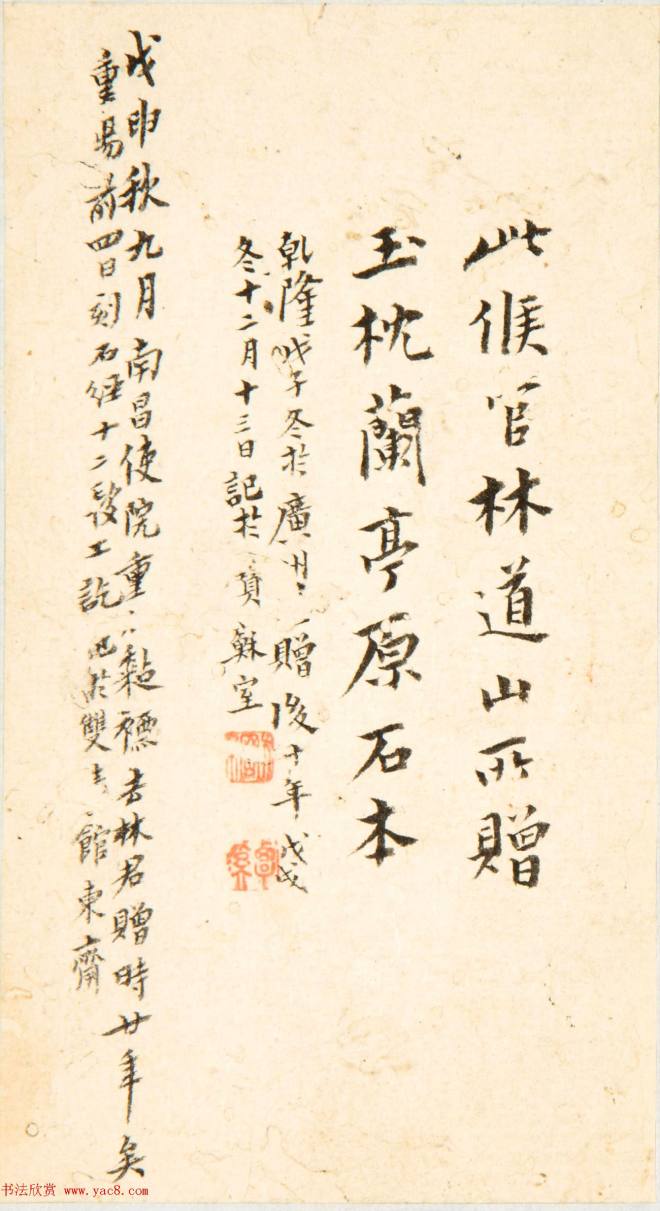 此候官林道山所贈
玉枕蘭亭原石本
乾隆戊子冬於廣州贈後十年戊戌
冬十二月十三日記於寶蘇室
戊申秋九月南昌使院重黏褾去林君贈時廿年矣
重陽前四日刻石經十二段工訖記於雙館東齋
书法欣赏 www.yac8.com